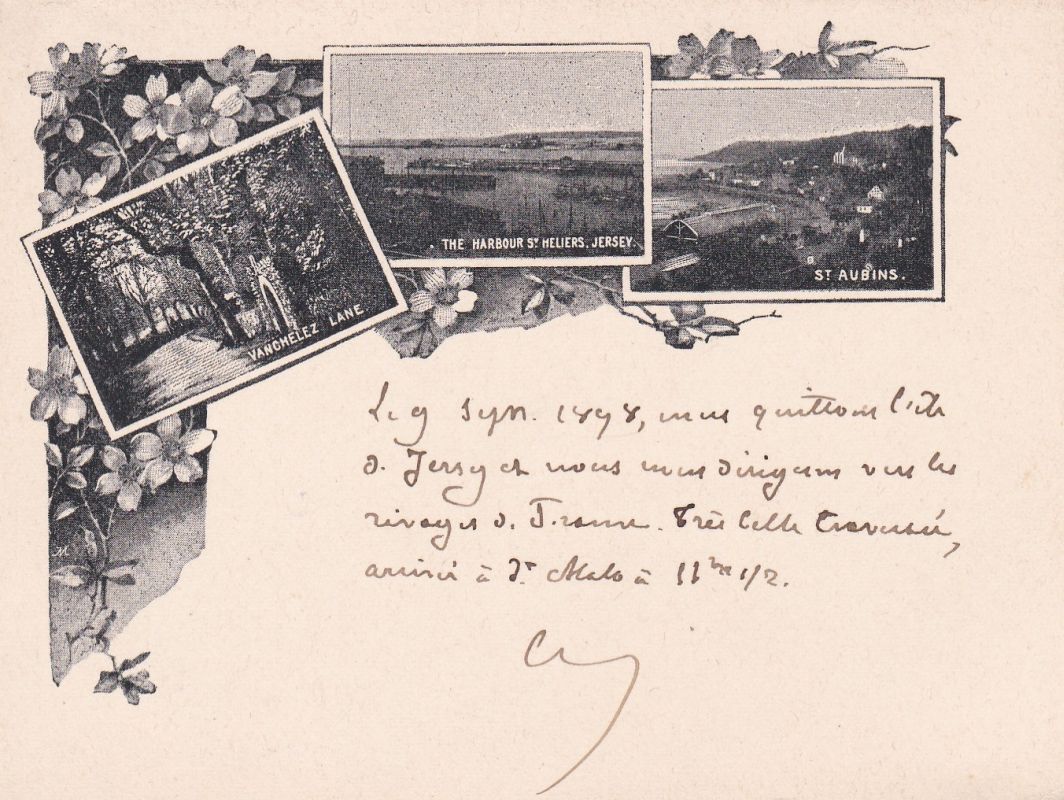 THE HARBOUR ST HELIERS, JERSEY.
ST AUBINS.
VANCHELEZ LANE
Le 9 Sept. 1898, nous quittons l'île
de Jersey et nous nous dirigeons vers les
rivages de France. Très belle traversée,
arrivée à St Malo à 11 hre 1/2.
M